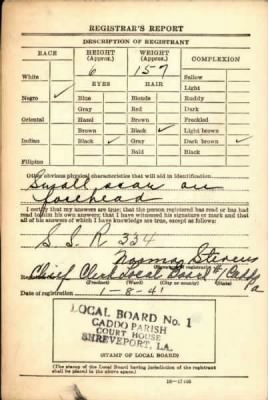 REGISTRAR'S REPORT
DESCRIPTION OF REGISTRANT
RACE HEIGHT (Approx.) WEIGHT (Approx.) COMPLEXION
6 157
White Sallow
EYES HAIR Light
Negro ✓ Blue Blonde Ruddy
Gray Red Dark
Oriental Hazel Brown Freckled
Brown Black ✓ Light brown
Indian Black ✓ Gray Dark brown ✓
Bald Black
Filipino
Other obvious physical characteristics that will aid in identification
Small scar on
forehead
I certify that my answers are true; that the person registered has read or has had
read to him his own answers; that I have witnessed his signature or mark and that
all of his answers of which I have knowledge are true, except as follows:
S.S.R 334
Stevens
Chief Clerk Local Board #1 Caddo
Pa
(Precinct) (Ward) (City or county) (State)
Date of registration 1-8-41
LOCAL BOARD No. 1
CADDO PARISH
COURT HOUSE
SHREVEPORT, LA.
(STAMP OF LOCAL BOARD)
(The stamp of the Local Board having jurisdiction of the registrant
shall be placed in the above space.)